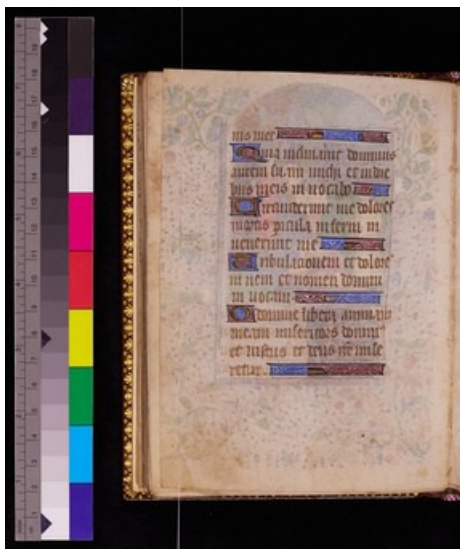 nis mee
Quia inclinauit dominus
aurem suam michi et in die
bus meis in uocabo
Circumdederunt me dolores
mortis picula inferni in
uenerunt me
Tribulacionem et dolore
in ueni et nomen domini
in uocaui
O domine libera animam
meam misericors domin
et iustus et deus nr mise
retur